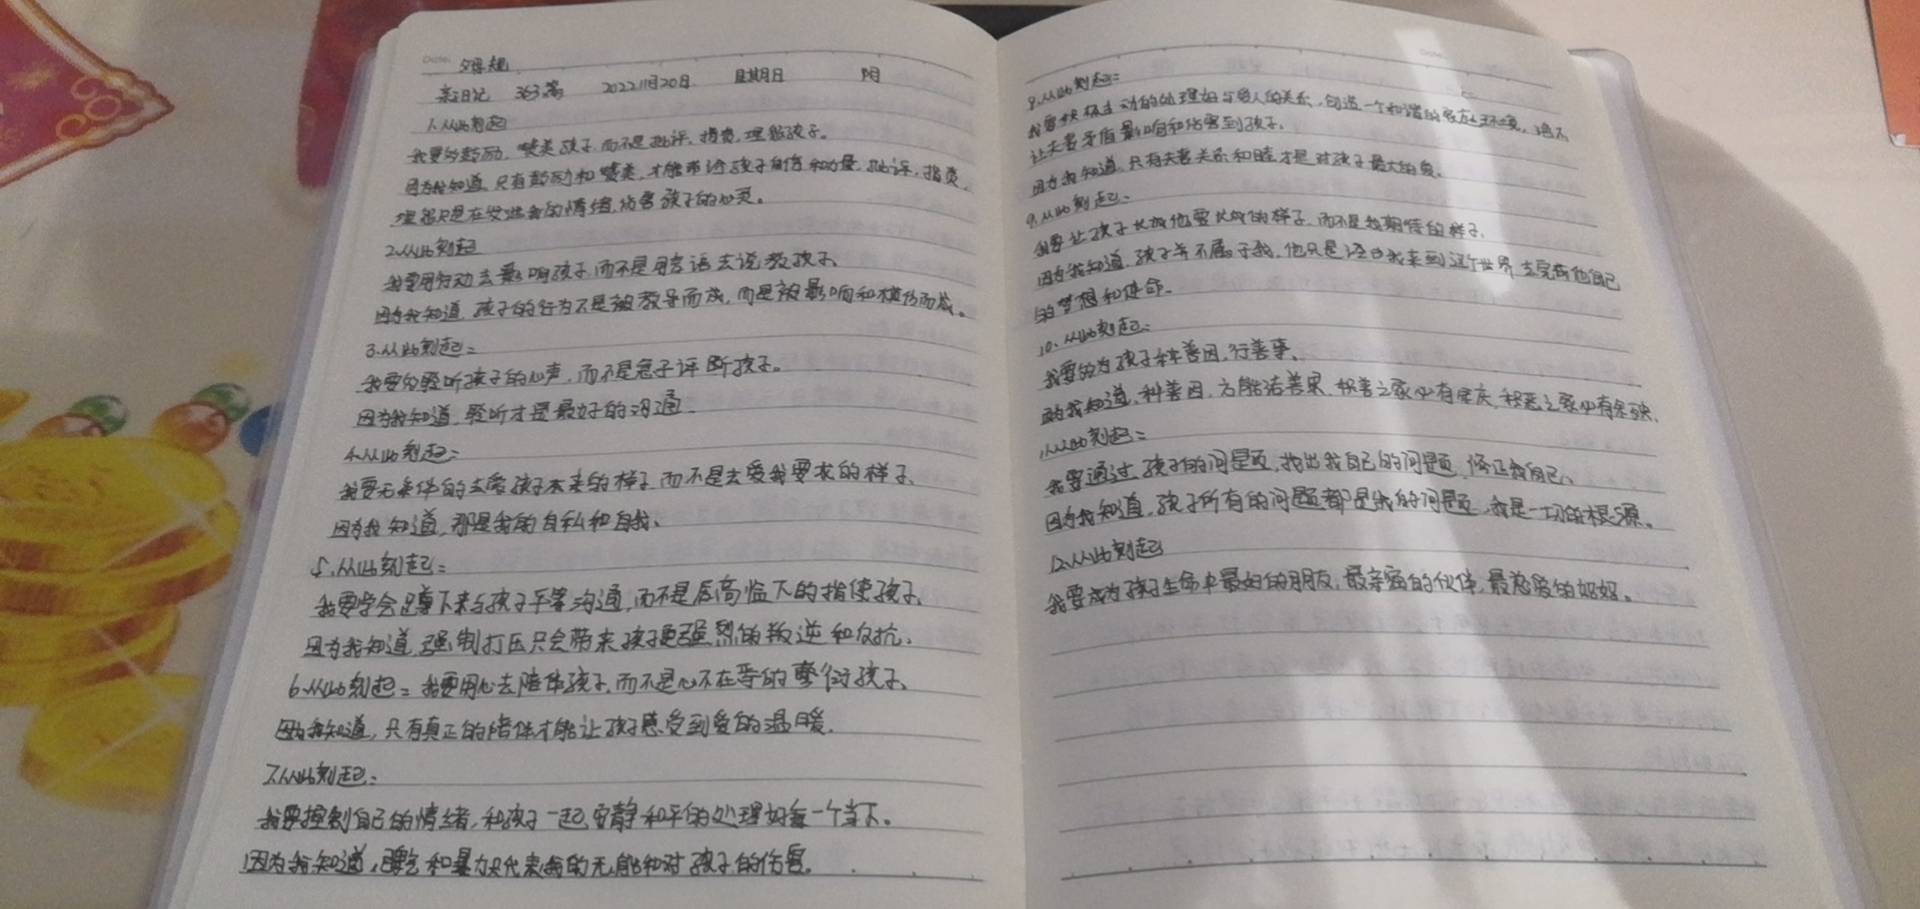 Date:
亲子日记 363篇 2022.11月20日 星期日 阴
1.从此刻起
我要多鼓励,赞美孩子,而不是批评,指责,埋怨孩子。
因为我知道,只有鼓励和赞美,才能带给孩子自信和力量,批评,指责,
埋怨只是在发泄我的情绪,伤害孩子的心灵。
2.从此刻起
我要用行动去影响孩子,而不是用言语去说教孩子、
因为我知道,孩子的行为不是被教导而成,而是被影响和模仿而成。
3.从此刻起:
我要多聆听孩子的心声,而不是急于评断孩子。
因为我知道,聆听才是最好的沟通、
4.从此刻起:
我要无条件的去爱孩子本来的样子,而不是去爱我要求的样子、
因为我知道,那是我的自私和自我、
5.从此刻起:
我要学会蹲下来与孩子平等沟通,而不是居高临下的指使孩子、
因为我知道,强制打压只会带来孩子更强烈的叛逆和反抗、
6.从此刻起:我要用心去陪伴孩子,而不是心不在焉的敷衍孩子、
因为我知道,只有真正的陪伴才能让孩子感受到爱的温暖.
7.从此刻起:
我要控制自己的情绪,和孩子一起安静和平的处理好每一个当下。
因为我知道,脾气和暴力只代表我的无能和对孩子的伤害。
Date:
8.从此刻起:
我要积极主动的处理好与爱人的关系,创造一个和谐的家庭环境,绝不
让夫妻矛盾影响和伤害到孩子、
因为我知道,只有夫妻关系和睦才是对孩子最大的爱、
9.从此刻起、
我要让孩子长成他要长成的样子,而不是我期待的样子、
因为我知道,孩子并不属于我,他只是经由我来到这个世界,去完成他自己
的梦想和使命、
10、从此刻起:
我要多为孩子种善因,行善事、
因为我知道,种善因,方能结善果,积善之家必有余庆,积恶之家必有余殃、
11.从此刻起:
我要通过孩子的问题,找出我自己的问题,修正我自己、
因为我知道,孩子所有的问题都是我的问题,我是一切的根源。
12.从此刻起
我要成为孩子生命中最好的朋友,最亲密的伙伴,最慈爱的妈妈。